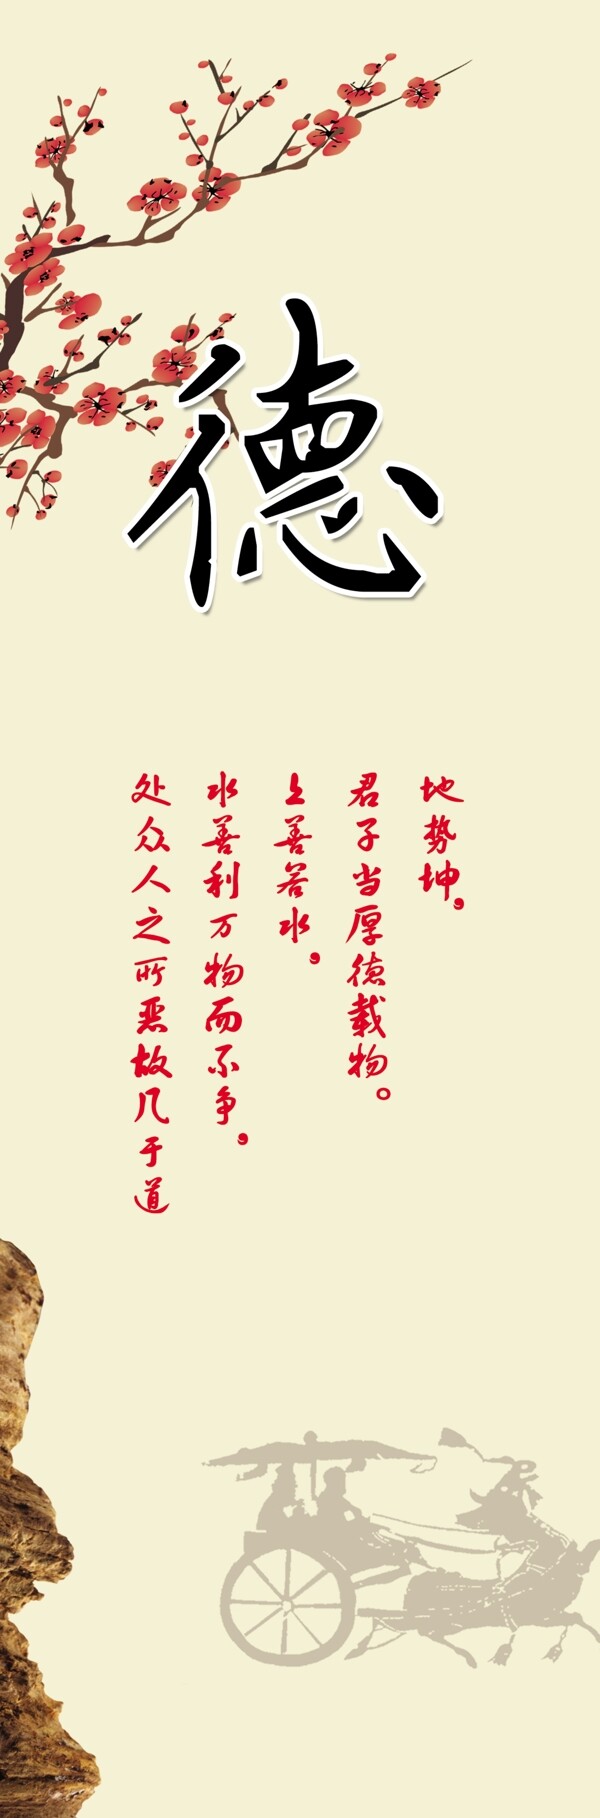 德
地势坤，
君子当厚德载物。
上善若水，
水善利万物而不争，
处众人之所恶故几于道